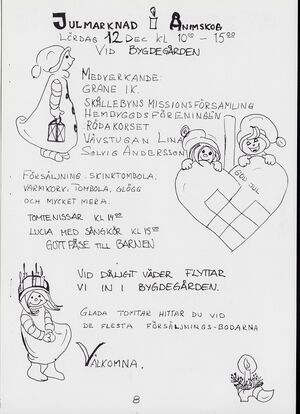 JULMARKNAD I ÄNIMSKOG
LÖRDAG 12 DEC KL 10⁰⁰ - 15⁰⁰
VID BYGDEGÅRDEN
MEDVERKANDE:
GRANE IK.
SKÅLLEBYNS MISSIONSFÖRSAMLING
HEMBYGGDSFÖRENINGEN
RÖDAKORSET
VÄVSTUGAN LINA
SOLVIG ANDERSSON
GOD JUL
FÖRSÄLJNING - SKINKTOMBOLA,
VARMKORV, TOMBOLA, GLÖGG
OCH MYCKET MERA.
TOMTENISSAR KL 14⁰⁰
LUCIA MED SÅNGKÖR KL 15⁰⁰
GOTTPÅSE TILL BARNEN
VID DÅLIGT VÄDER FLYTTAR
VI IN I BYGDEGÅRDEN.
GLADA TOMTAR HITTAR DU VID
DE FLESTA FÖRSÄLJNINGS-BODARNA
VÄLKOMNA.
8